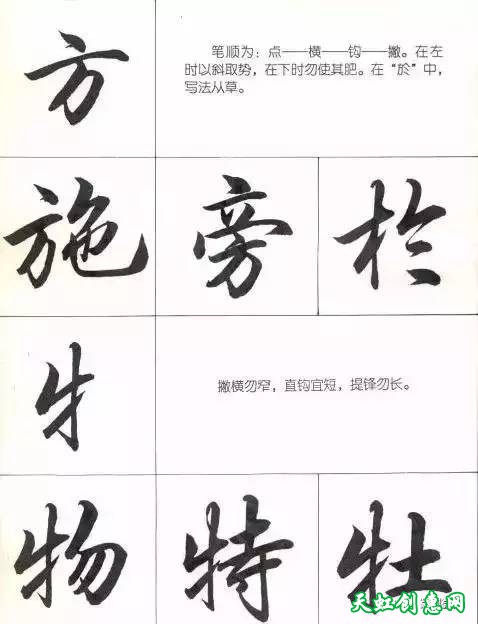 方
笔顺为：点——横——钩——撇。在左
时以斜取势，在下时勿使其肥。在“於”中，
写法从草。
施 旁 於
牜
撇横勿窄，直钩宜短，提锋勿长。
物 特 牡
天虹创意网